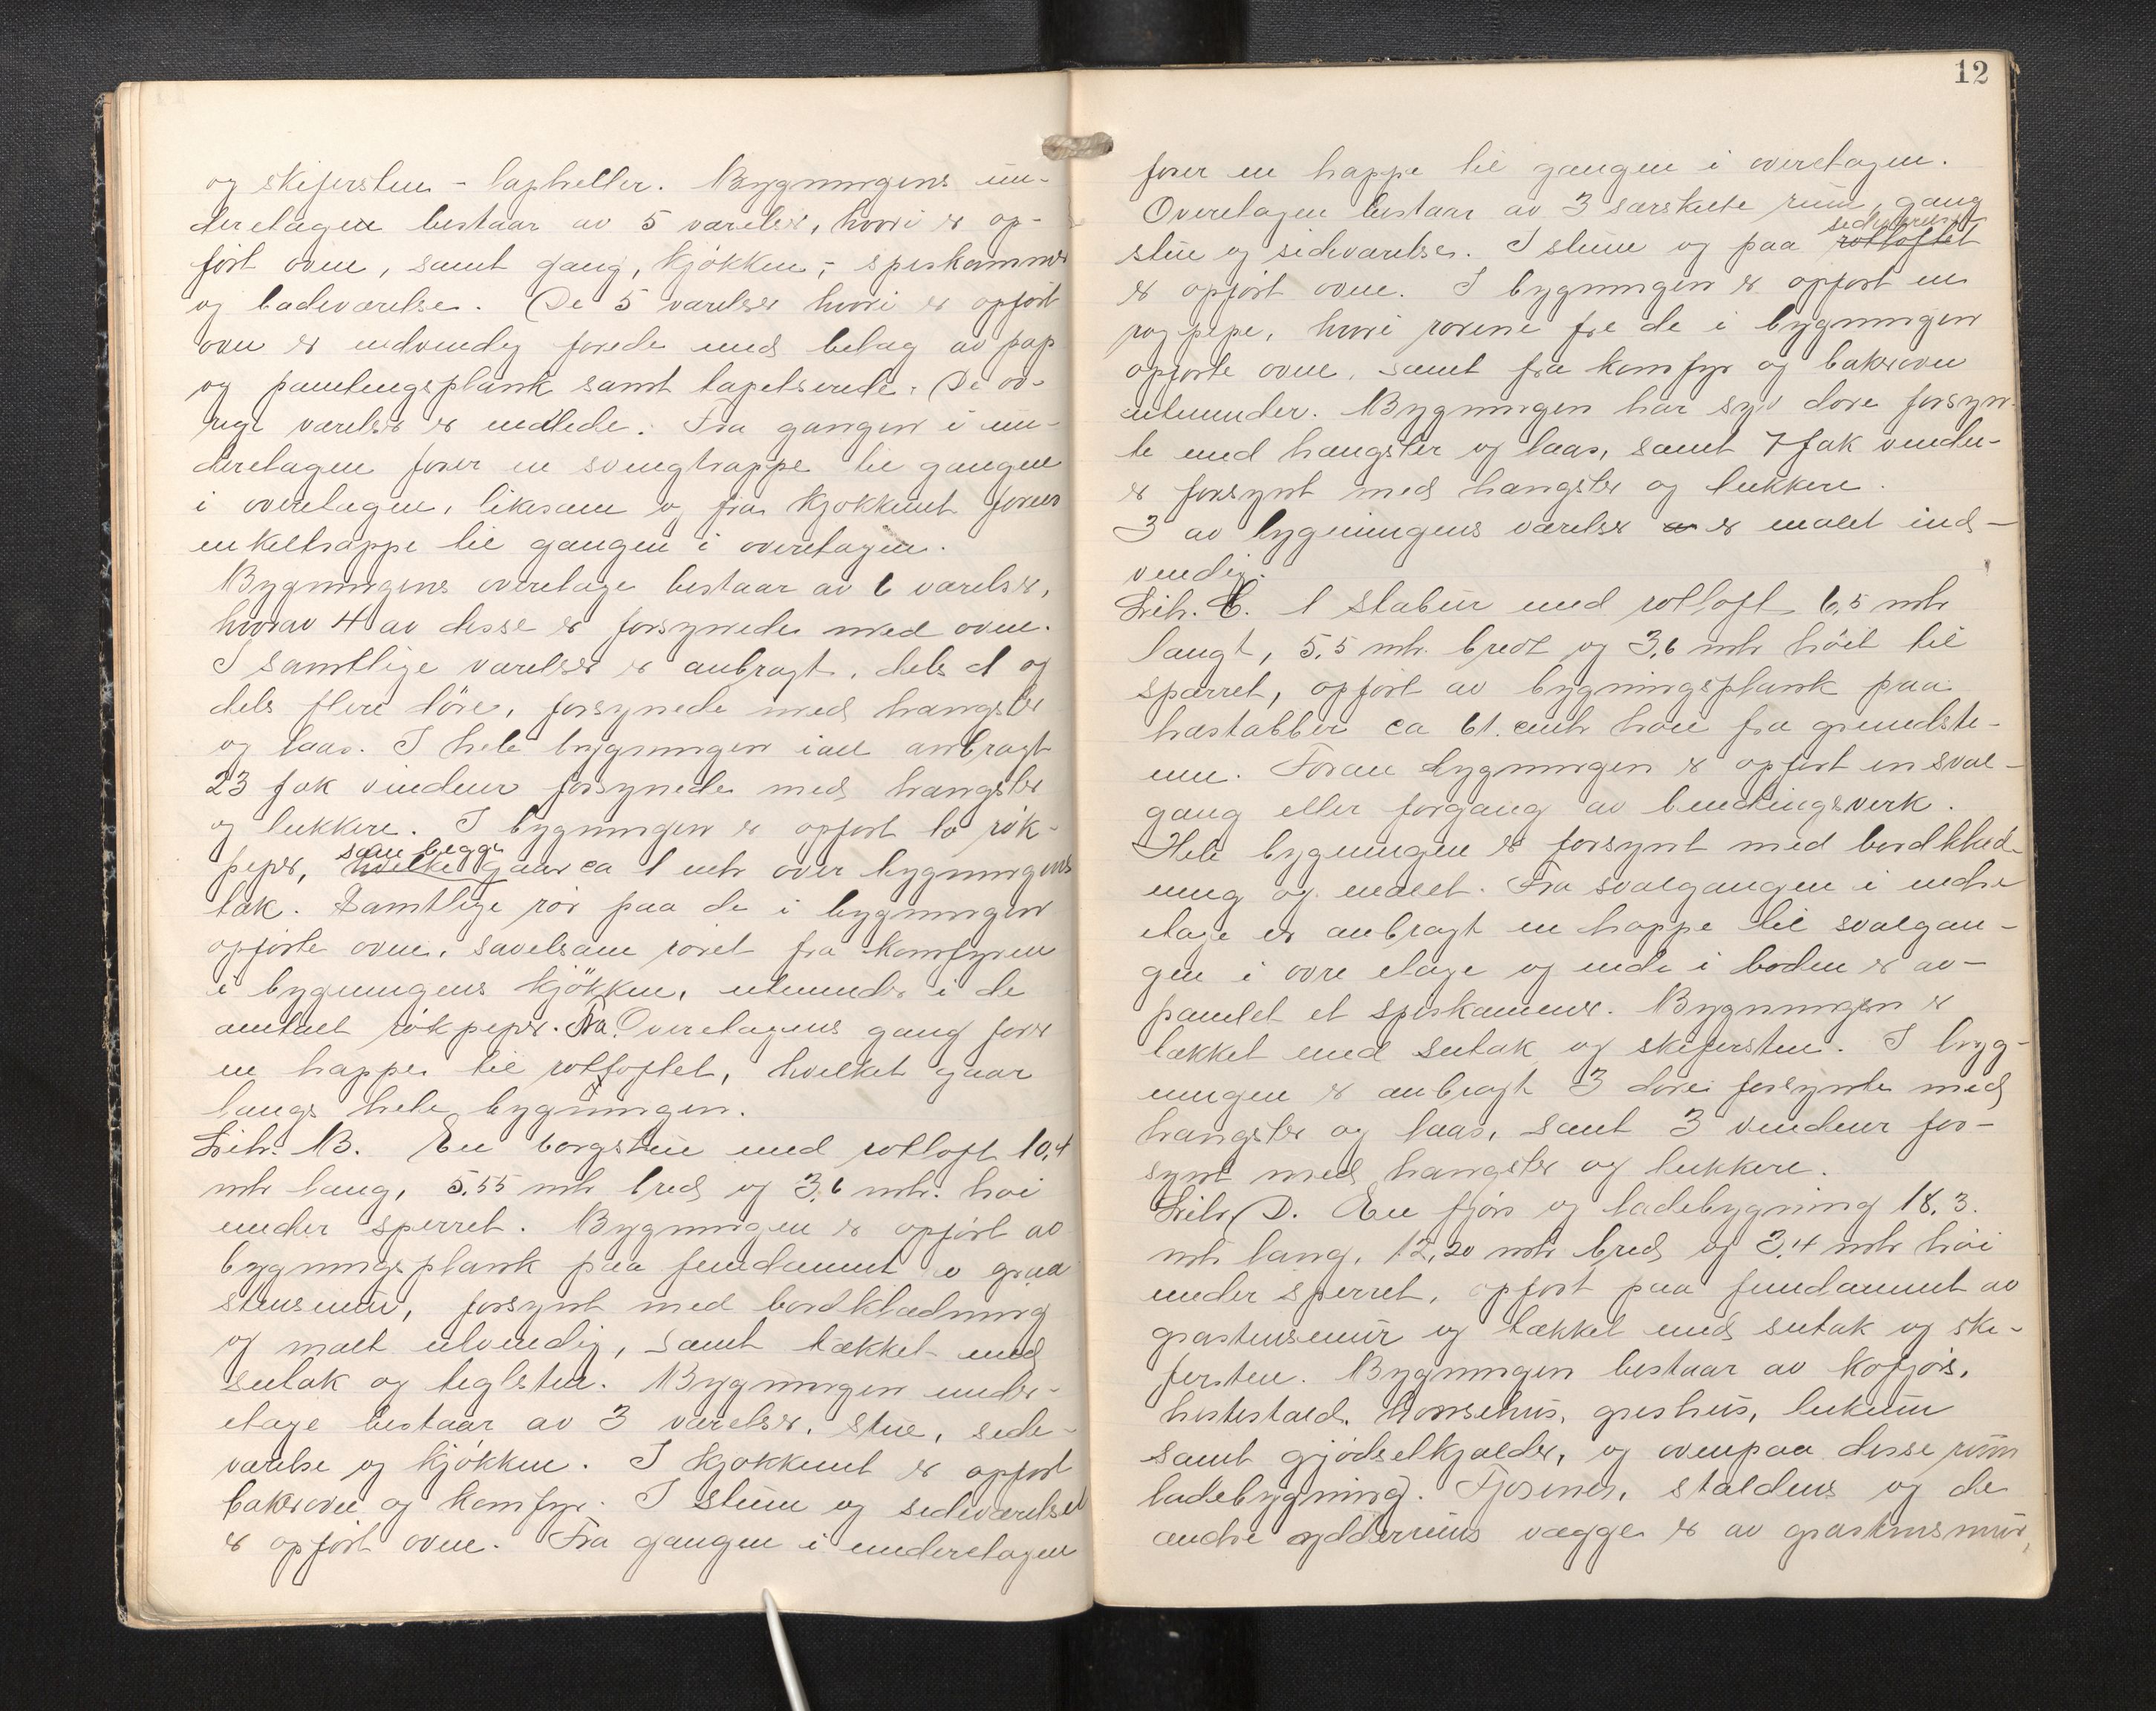 og skifersten - lapheller. Bygningens un-
deretagen bestaar av 5 værelser, hvori er op-
ført ovne, samt gang, kjøkken, spiskammer
og badeværelse. De 5 værelser hvori er opført
ovn er indvendig forede med belag av pap
og panelingsplank samt tapetserede. De øv-
rige værelser er malede. Fra gangen i un-
deretagen fører en svingtrappe til gangen
i overetagen, likesom og fra kjøkkenet fører
enkeltrappe til gangen i overetagen.
Bygningens overetage bestaar av 6 værelser,
hvorav 4 av disse er forsynede med ovne.
I samtlige værelser er anbragt, dels 1 og
dels flere døre, forsynede med hangsler
og laas. I hele bygningen i alt anbragt
23 fak vinduer forsynede med hangsler
og lukkere. I bygningen er opført to røk-
som begge
peper, hvilke gaar ca 1 mtr over bygningens
tak. Samtlige rør paa de i bygningen
opførte ovne, savelsom røret fra komfyren
i bygningens kjøkken, utmunder i de
omtalt røkpeper. Fra Overetagens gang fører
en trappe til rotloftet, hvilket gaar
langs hele bygningen.
Litr. B. En borgstue med rotloft 10,4
mtr lang, 5.55 mtr bred og 3,6 mtr. høi
under sperret. Bygningen er opført av
bygningsplank paa fundament av graa
stensmur, forsynt med bordklædning
og malt utvendig, samt tækket med
sutak og teglsten. Bygningen under-
etage bestaar av 3 værelser, stue, side-
værelse og kjøkken. I kjøkkenet er opført
bakerovn og komfyr. I stuen og sideværelset
er opført ovne. Fra gangen i underetagen
12
fører en trappe til gangen i overetagen.
Overetagen bestaar av 3 særskilte rum, gang
sideværelset
stue og sideværelse. I stuen og paa rotloftet
er opført ovne. I bygningen er opført en
røgpipe, hvori rørene fra de i bygningen
opførte ovne, samt fra komfyr og bakerovn
utmunder. Bygningen har syv døre forsyn-
te med hangsler og laas, samt 7 fak vindu-
er forsynt med hangsler og lukkere.
3 av bygningens værelser er malet ind-
vendig.
Litr. C. 1 stabur med rotloft 6,5 mtr
langt, 5.5 mtr. bredt og 3,6 mtr høit til
sperret, opført av bygningsplank paa
træstabber ca 61. cmtr høie fra grundste-
nen. Foran bygningen er opført en sval-
gang eller forgang av bindingsverk.
Hele bygningen er forsynt med bordklæd-
ning og malet. Fra svalgangen i nedre
etage er anbragt en trappe til svalgan-
gen i øvre etage og inde i boden er av-
panelet et spiskammer. Bygningen er
tækket med sutak og skifersten. I byg-
ningen er anbragt 3 døre forsynte med
hangsler og laas, samt 3 vinduer for-
synt med hangsler og lukkere.
Litr. D. En fjøs og ladebygning 18,3.
mtr lang, 12,20 mtr bred og 3,4 mtr høi
under sperret, opført paa fundament av
graastensmur og tækket med sutak og ski-
fersten. Bygningen bestaar av kofjøs,
hestestald, hønsehus, grishus,
samt gjødselkjælder, og ovenpaa disse rum
ladebygning. Fjøsenes, staldens og de
andre ydderrums vægger er av graastensmur,